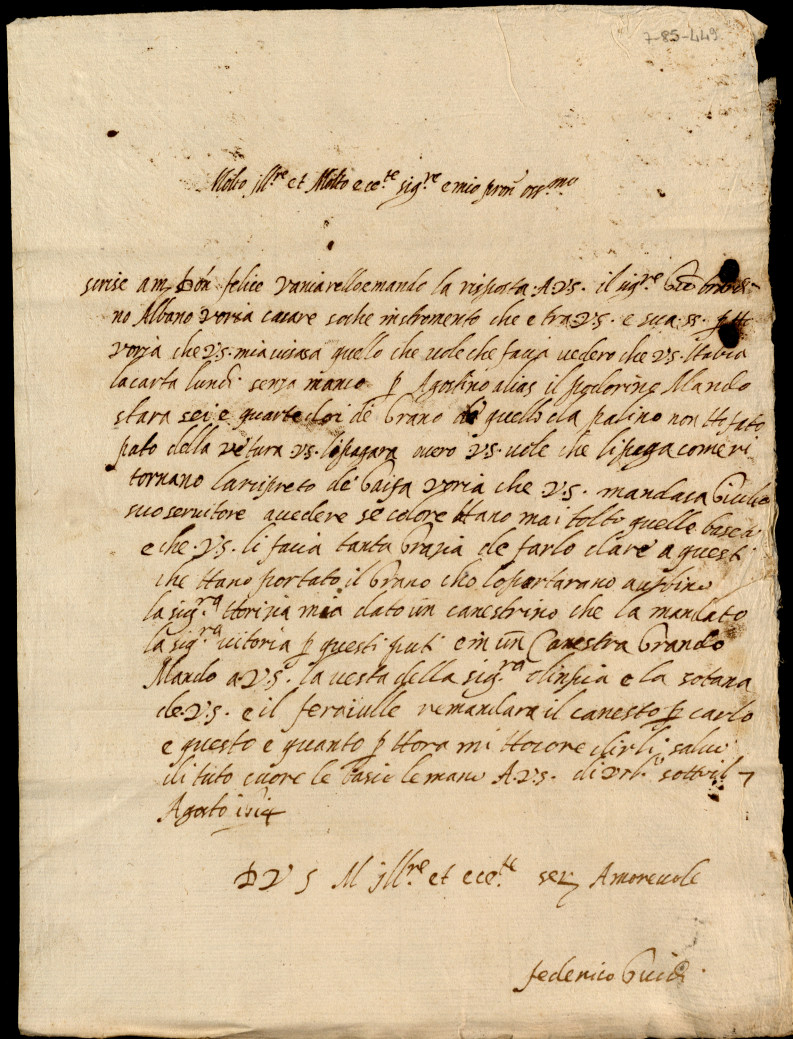 7-85-449
Molto Jll.re et Molto ece.te sig.re e mio pron oss.mo
scrise a m. Don felice Vaniarello e mando la risposta. A.V.S. il sig.re
no Albano voria cavare soche instromento che e tra V.S. e sua ss.
voria che V.S. mi avisasa quello che vole che facia vedero che V.S. Habia
la carta lundi senza manco p Agostino alias il pedorino Mando
stara sei e quarte doi de Grano de quello da palino non Ho fato
pato della vetura V.S. lo pagara overo V.S. vole che li paga come ri
tornano larcipreto de voria che V.S. mandasa Giulio
suo servitore a vedere se colore Hano mai tolto quelle
e che V.S. li facia tanta Grazia de farlo dare a questi
che Hano portato il Grano cho lo portarano a
la sig.ra mia dato un canestrino che la mandato
la sig.ra vitoria p questi puti e in un Canestra Grando
Mando a V.S. la vesta della sig.ra olimpia e la sotana
de V.S. e il feraiulle remandara il canesto p carlo
e questo e quanto p Hora mi Hocore dirli salu
di tuto cuore le basio le mane A.V.S. di il 7
Agosto
D V S M Jll.re et ece.te ser. Amorevole
federico Guidi